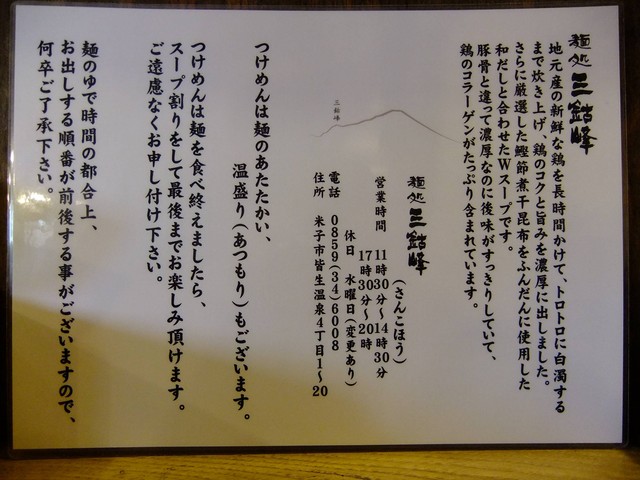 麺処 三鈷峰
地元産の新鮮な鶏を長時間かけて、トロトロに白濁する
まで炊き上げ、鶏のコクと旨みを濃厚に出しました。
さらに厳選した鰹節煮干昆布をふんだんに使用した
和だしと合わせたWスープです。
豚骨と違って濃厚なのに後味がすっきりしていて、
鶏のコラーゲンがたっぷり含まれています。
麺処 三鈷峰
(さんこほう)
営業時間 11時30分〜14時30分
17時30分〜20時
休日 水曜日(変更あり)
電話 0859(34)6008
住所 米子市皆生温泉4丁目1〜20
三鈷峰
つけめんは麺のあたたかい、
温盛り(あつもり)もございます。
つけめんは麺を食べ終えましたら、
スープ割りをして最後までお楽しみ頂けます。
ご遠慮なくお申し付け下さい。
麺のゆで時間の都合上、
お出しする順番が前後する事がございますので、
何卒ご了承下さい。